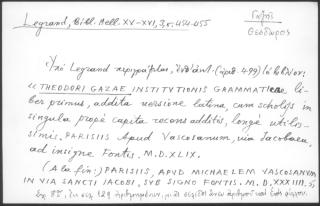 Legrand, Bibl. Hell. XV-XVI, 3, σ. 454-455
Γαζῆς
Θεόδωρος
Ὑπὸ Legrand περιγράφεται, ἐνθ' ἀνωτ. (ἀριθ. 499) τὸ βιβλίον:
« THEODORI GAZAE INSTITUTIONIS GRAMMATICAE li-
ber primus, addita versione latina, cum scholijs in
singula propè capita recens additis, longè utilis-
simis, PARISIIS Apud Vascosanum, via Jacobaea,
ad insigne Fontis. M.D.XLIX.
(A la fin:) PARISIIS, APUD MICHAELEM VASCOSANUM
IN VIA SANCTI JACOBI, SVB SIGNO FONTIS. M.D.XXXIIII.
Εἰς 8ον, ἐκ σελ. 129 ἀριθμημένων,